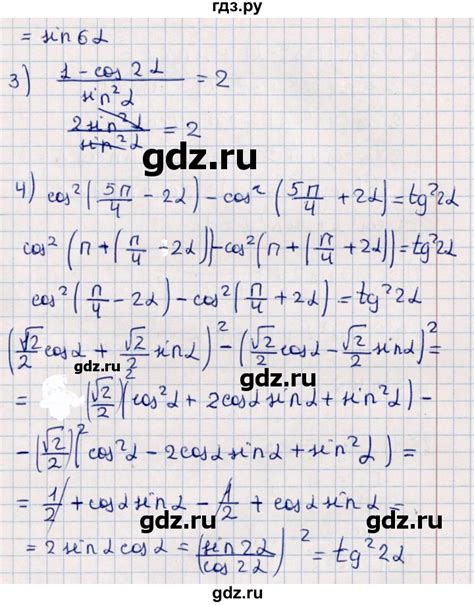 гдз.ру
= sin 6α
3) (1 - cos 2α)/(sin²α) = 2
(2 sin²α)/(sin²α) = 2
gdz.ru
4) cos²(5π/4 - 2α) - cos²(5π/4 + 2α) = tg²2α
cos²(π + (π/4 - 2α)) - cos²(π + (π/4 + 2α)) = tg²2α
gdz.ru
cos²(π/4 - 2α) - cos²(π/4 + 2α) = tg²2α
(√2/2 cosα + √2/2 sinα)² - (√2/2 cosα - √2/2 sinα)² =
gdz.ru
gdz.ru
= (√2/2)(cos²α + 2cosα sinα + sin²α) -
- (√2/2)²(cos²α - 2cosα sinα + sin²α) =
= 1/2 + cosα sinα - 1/2 + cosα sinα =
gdz.ru
gdz.ru
= 2 sinα cosα = (sin 2α/cos 2α)² = tg²2α
gdz.ru